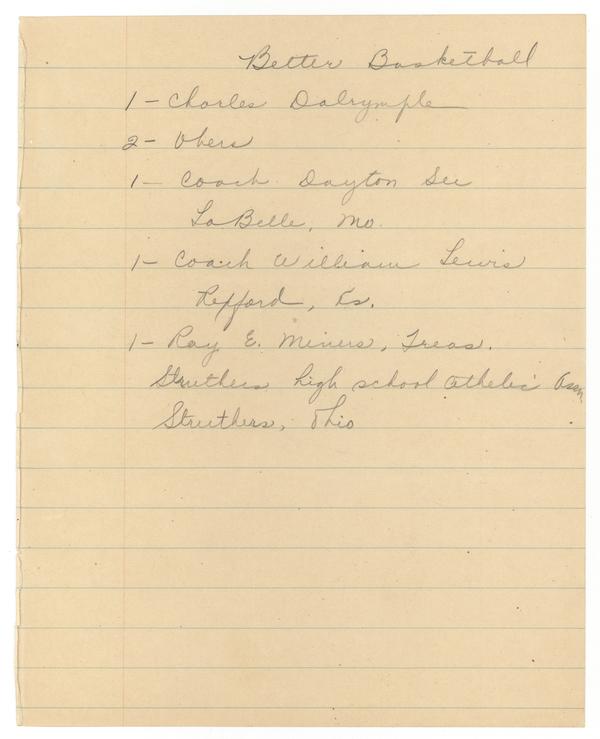 Better Basketball
1 - Charles Dalrymple
2 - Obers
1 - Coach Dayton See
LaBelle, Mo.
1 - Coach William Lewis
Rexford, Ks.
1 - Ray E. Miners, Treas.
Struthers high school Atheletic Assn.
Struthers, Ohio